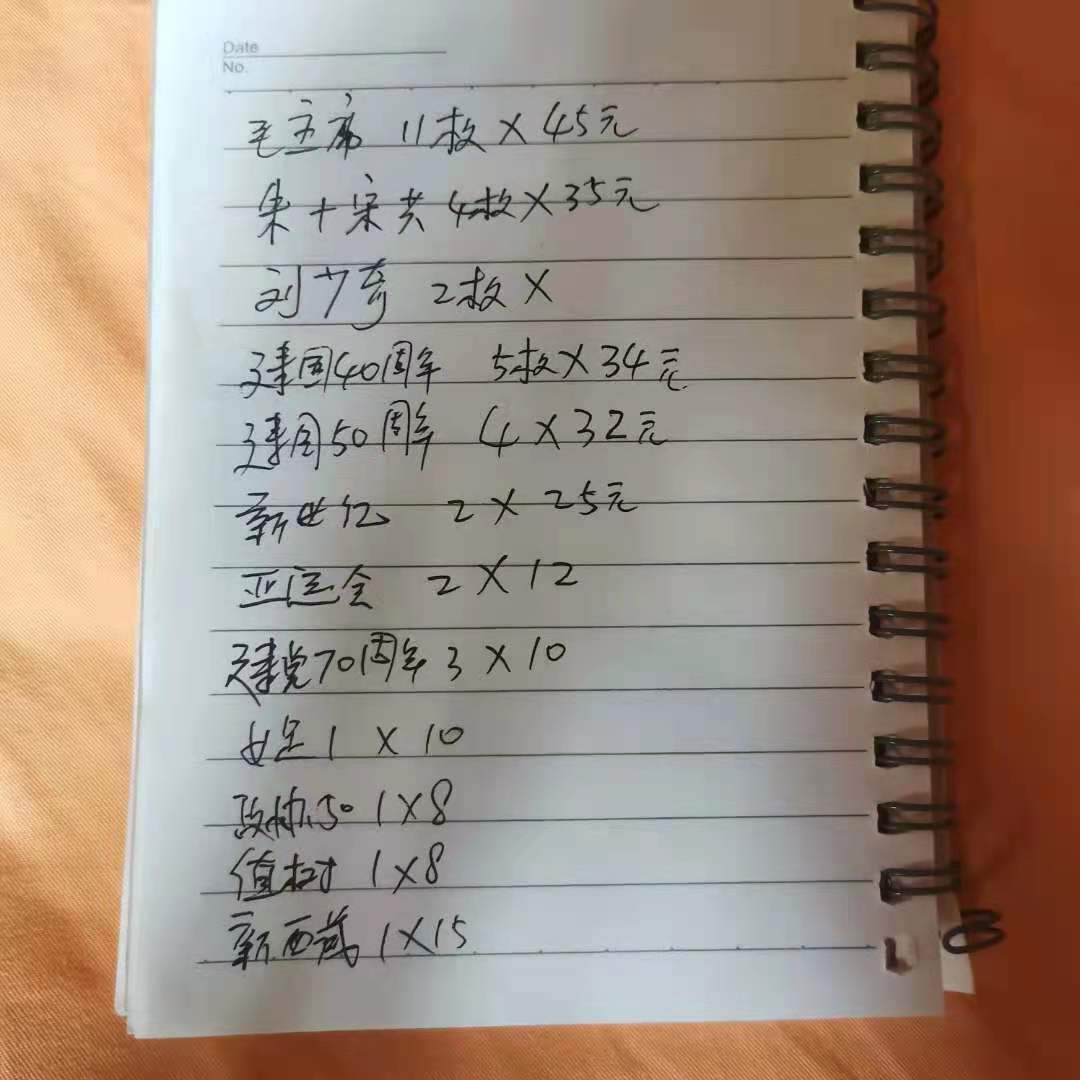 Date
No.
毛主席 11枚×45元
朱+宋共 4枚×35元
刘少奇 2枚×
建国40周年 5枚×34元
建国50周年 4×32元
新世纪 2×25元
亚运会 2×12
建党70周年 3×10
女足 1×10
政协50 1×8
值树 1×8
新西藏 1×15